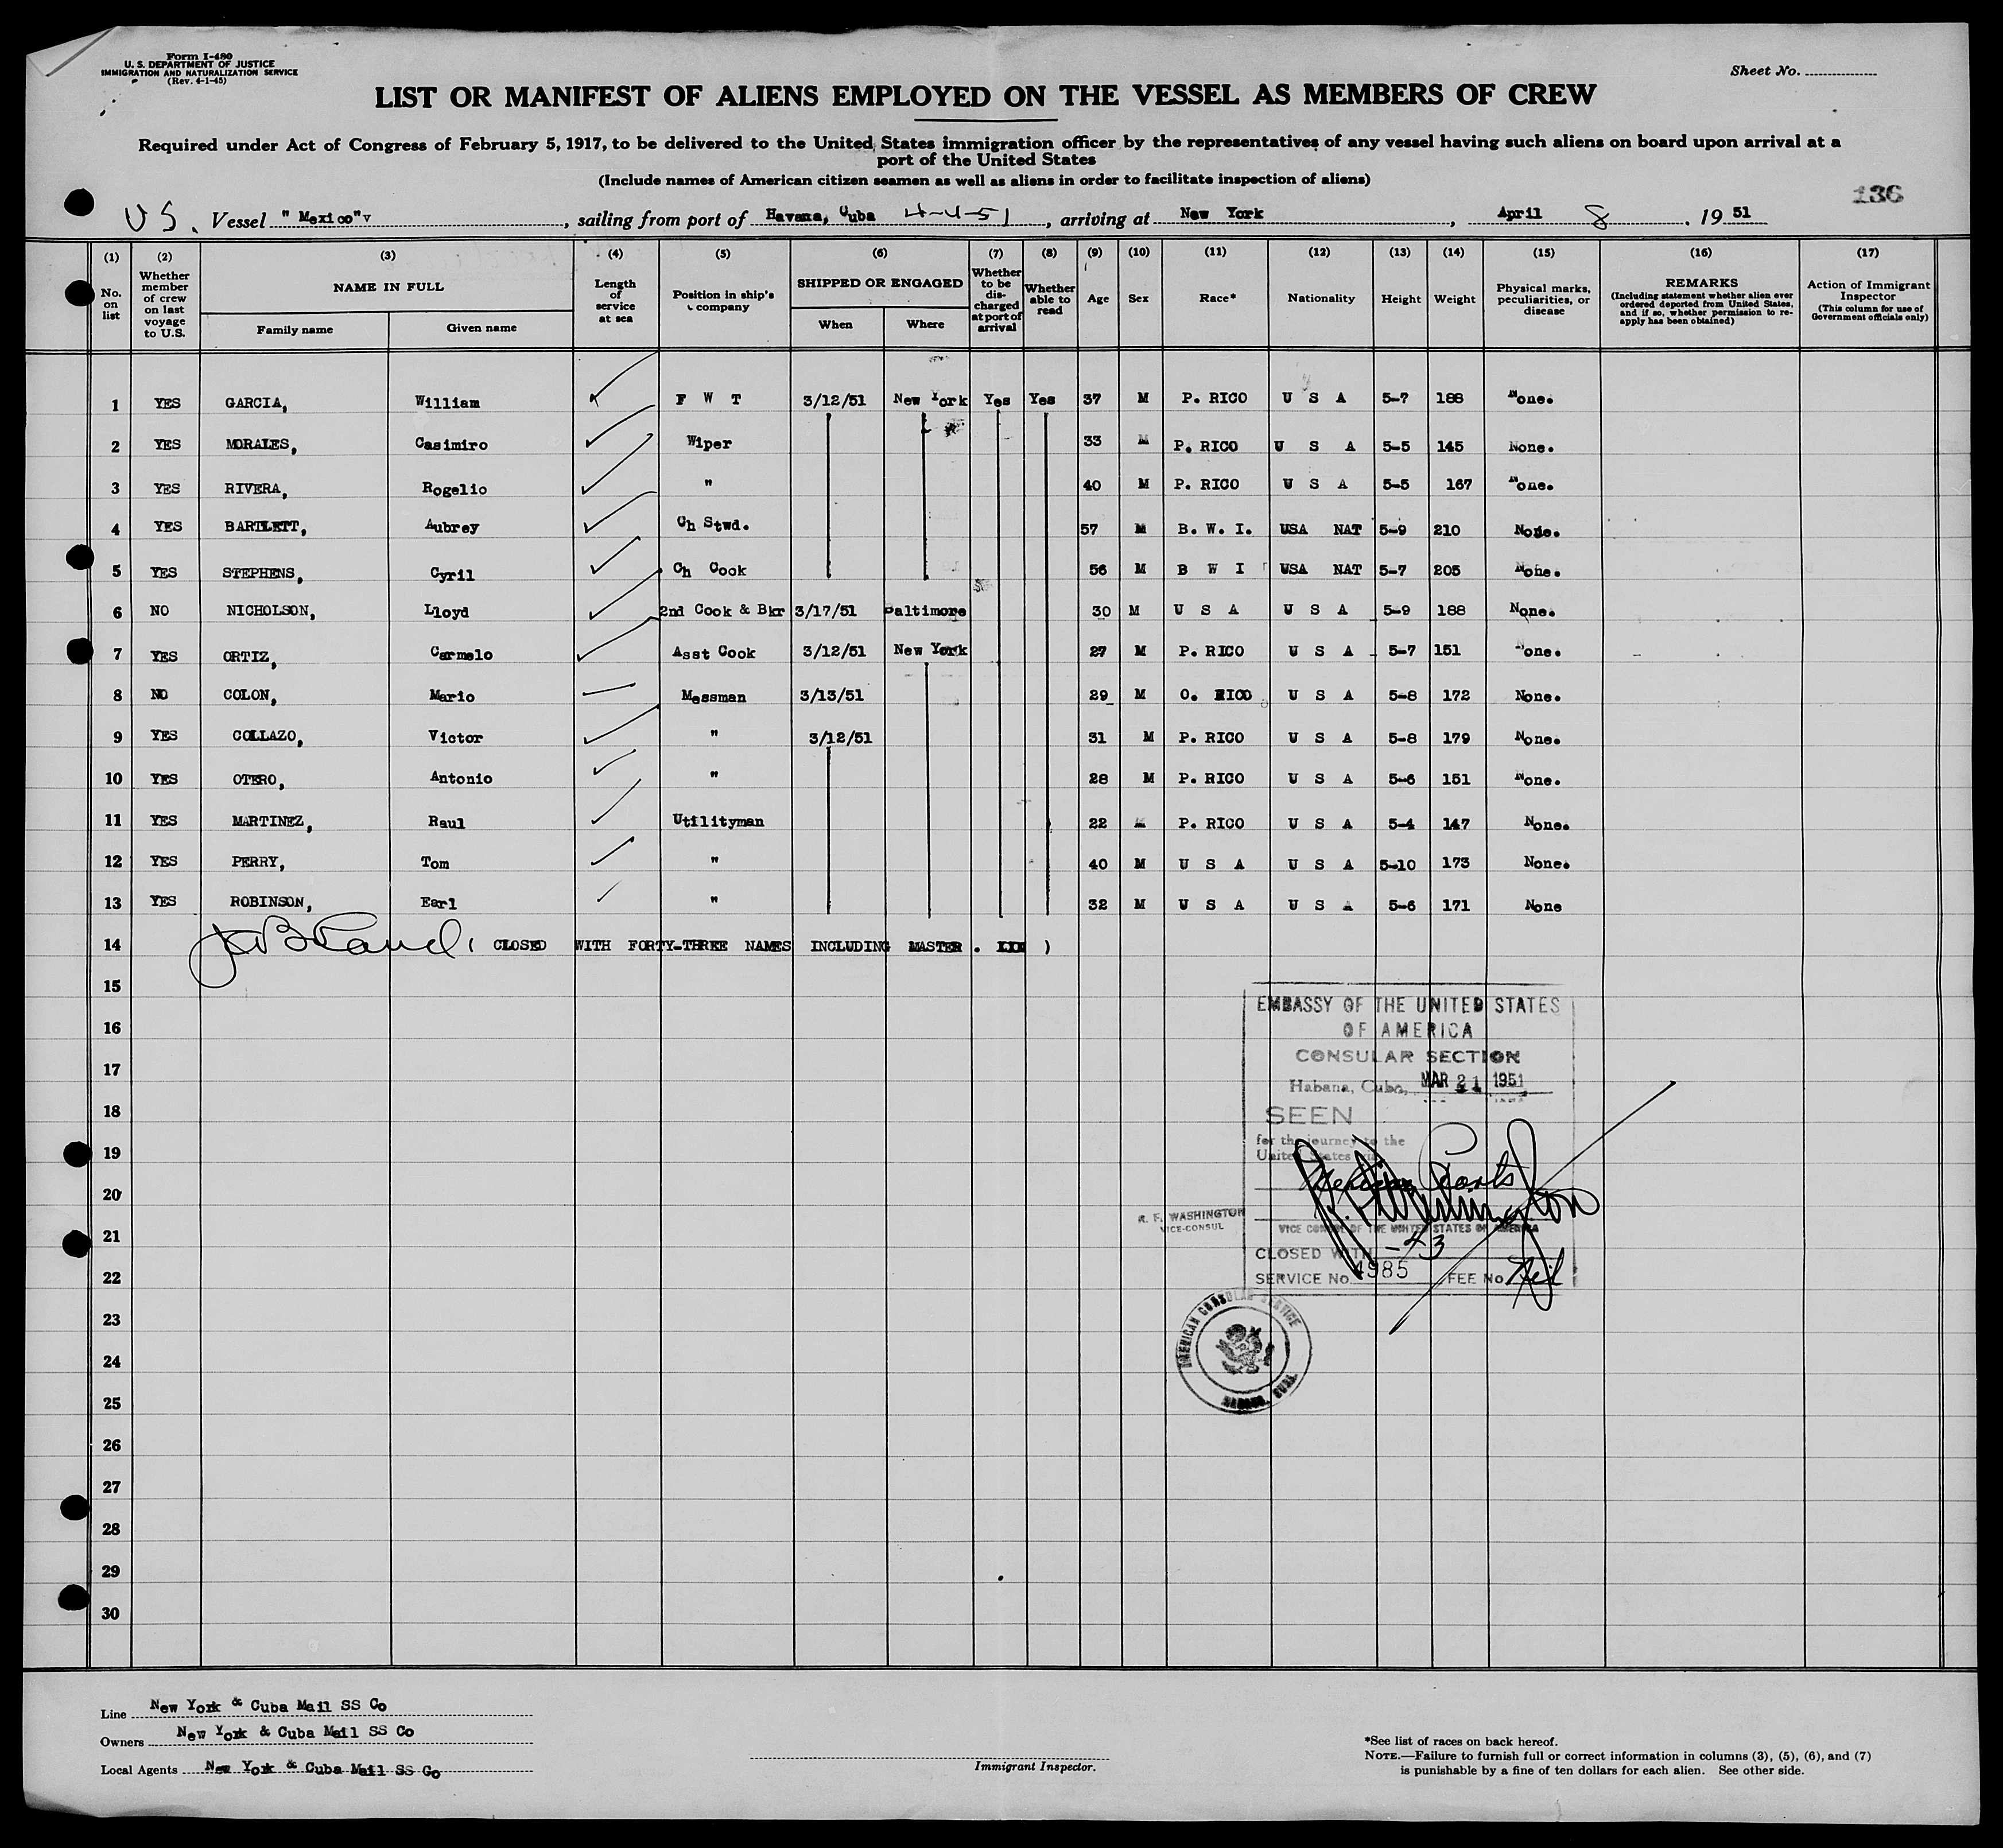 Form I-480
U. S. DEPARTMENT OF JUSTICE
IMMIGRATION AND NATURALIZATION SERVICE
(Rev. 4-1-45)
Sheet No.
LIST OR MANIFEST OF ALIENS EMPLOYED ON THE VESSEL AS MEMBERS OF CREW
Required under Act of Congress of February 5, 1917, to be delivered to the United States immigration officer by the representatives of any vessel having such aliens on board upon arrival at a
port of the United States
(Include names of American citizen seamen as well as aliens in order to facilitate inspection of aliens)
136
U S. Vessel "Mexico" , sailing from port of Havana, Cuba 4-4-51 , arriving at New York , April 8 , 19 51
(1) (2) (3) (4) (5) (6) (7) (8) (9) (10) (11) (12) (13) (14) (15) (16) (17)
No. on list
Whether member of crew on last voyage to U.S.
NAME IN FULL
Family name Given name
Length of service at sea
Position in ship's company
SHIPPED OR ENGAGED
When Where
Whether to be discharged at port of arrival
Whether able to read
Age Sex Race* Nationality Height Weight
Physical marks, peculiarities, or disease
REMARKS
(Including statement whether alien ever ordered deported from United States, and if so, whether permission to reapply has been obtained)
Action of Immigrant Inspector
(This column for use of Government officials only)
1 YES GARCIA, William F W T 3/12/51 New York Yes Yes 37 M P. RICO U S A 5-7 188 None.
2 YES MORALES, Casimiro Wiper 33 M P. RICO U S A 5-5 145 None.
3 YES RIVERA, Rogelio " 40 M P. RICO U S A 5-5 167 None.
4 YES BARTLETT, Aubrey Ch Stwd. 57 M B. W. I. USA NAT 5-9 210 None.
5 YES STEPHENS, Cyril Ch Cook 56 M B W I USA NAT 5-7 205 None.
6 NO NICHOLSON, Lloyd 2nd Cook & Bkr 3/17/51 Baltimore 30 M U S A U S A 5-9 188 None.
7 YES ORTIZ, Carmelo Asst Cook 3/12/51 New York 27 M P. RICO U S A 5-7 151 None.
8 NO COLON, Mario Messman 3/13/51 29 M O. RICO U S A 5-8 172 None.
9 YES COLLAZO, Victor " 3/12/51 31 M P. RICO U S A 5-8 179 None.
10 YES OTERO, Antonio " 28 M P. RICO U S A 5-6 151 None.
11 YES MARTINEZ, Raul Utilityman 22 M P. RICO U S A 5-4 147 None.
12 YES PERRY, Tom " 40 M U S A U S A 5-10 173 None.
13 YES ROBINSON, Earl " 32 M U S A U S A 5-6 171 None
14 ( CLOSED WITH FORTY-THREE NAMES INCLUDING MASTER . )
15
16
17
18
19
20
21
22
23
24
25
26
27
28
29
30
EMBASSY OF THE UNITED STATES
OF AMERICA
CONSULAR SECTION
Habana, Cuba, MAR 21 1951
SEEN
for the journey to the
United States via
R. F. WASHINGTON
VICE-CONSUL
VICE CONSUL OF THE UNITED STATES OF AMERICA
CLOSED WITH -43
SERVICE No. 4985 FEE No.
AMERICAN CONSULAR SERVICE
HABANA, CUBA
Line New York & Cuba Mail SS Co
Owners New York & Cuba Mail SS Co
Local Agents New York & Cuba Mail SS Co
Immigrant Inspector.
*See list of races on back hereof.
NOTE.—Failure to furnish full or correct information in columns (3), (5), (6), and (7)
is punishable by a fine of ten dollars for each alien. See other side.